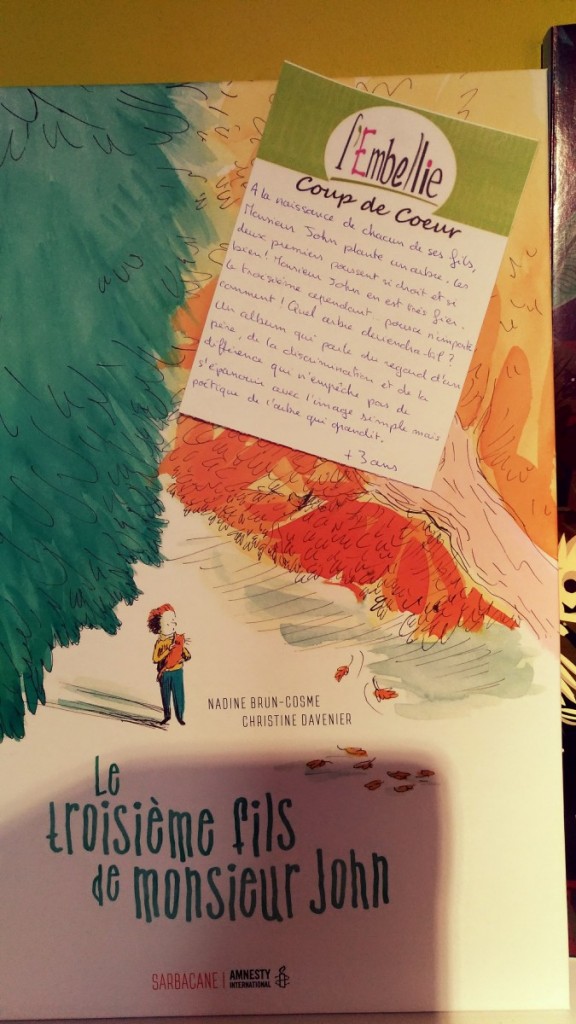 l'Embellie
Coup de Coeur
A la naissance de chacun de ses fils,
Monsieur John plante un arbre. Les
deux premiers poussent si droit et si
bien! Monsieur John en est très fier.
Le troisième cependant... pousse n'importe
comment! Quel arbre deviendra-t-il?
Un album qui parle du regard d'un
père, de la discrimination et de la
différence qui n'empêche pas de
s'épanouir avec l'image simple mais
poétique de l'arbre qui grandit.
+ 3 ans
NADINE BRUN-COSME
CHRISTINE DAVENIER
Le
troisième fils
de monsieur John
SARBACANE | AMNESTY
INTERNATIONAL